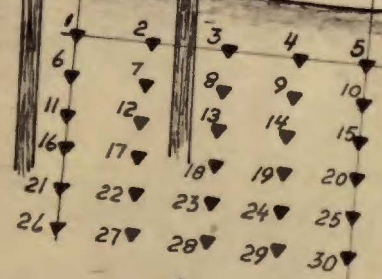 1 2 3 4 5
6 7 8 9 10
11 12 13 14 15
16 17 18 19 20
21 22 23 24 25
26 27 28 29 30